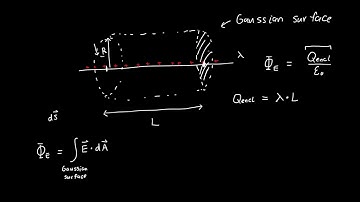 Gaussian surface
R
λ
Φ_E = Q_encl / ε_0
Q_encl = λ·L
L
dS⃗
Φ_E = ∫ E⃗ · dA⃗
Gaussian
surface